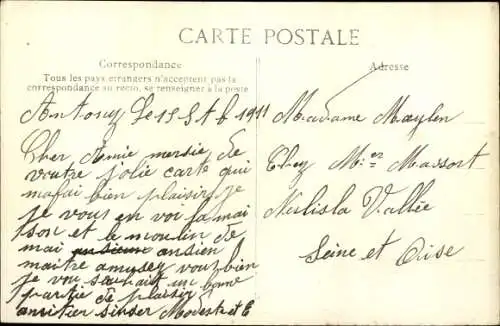 CARTE POSTALE
Correspondance
Tous les pays étrangers n'acceptent pas la
correspondance au recto, se renseigner à la poste
Adresse
Antony Le 15 1911
Cher Amie mersie de
voutre jolie carte qui
mafai bien plaisir je
je vous en voi la mai
son et le moulin de
mai ansien
maitre amusez vous bien
je vou souhait un bone
partie de plaisir
amitier Modeste et E
Madame Maylen
Chez Mr Massort
Neslisla Vallée
Seine et Oise